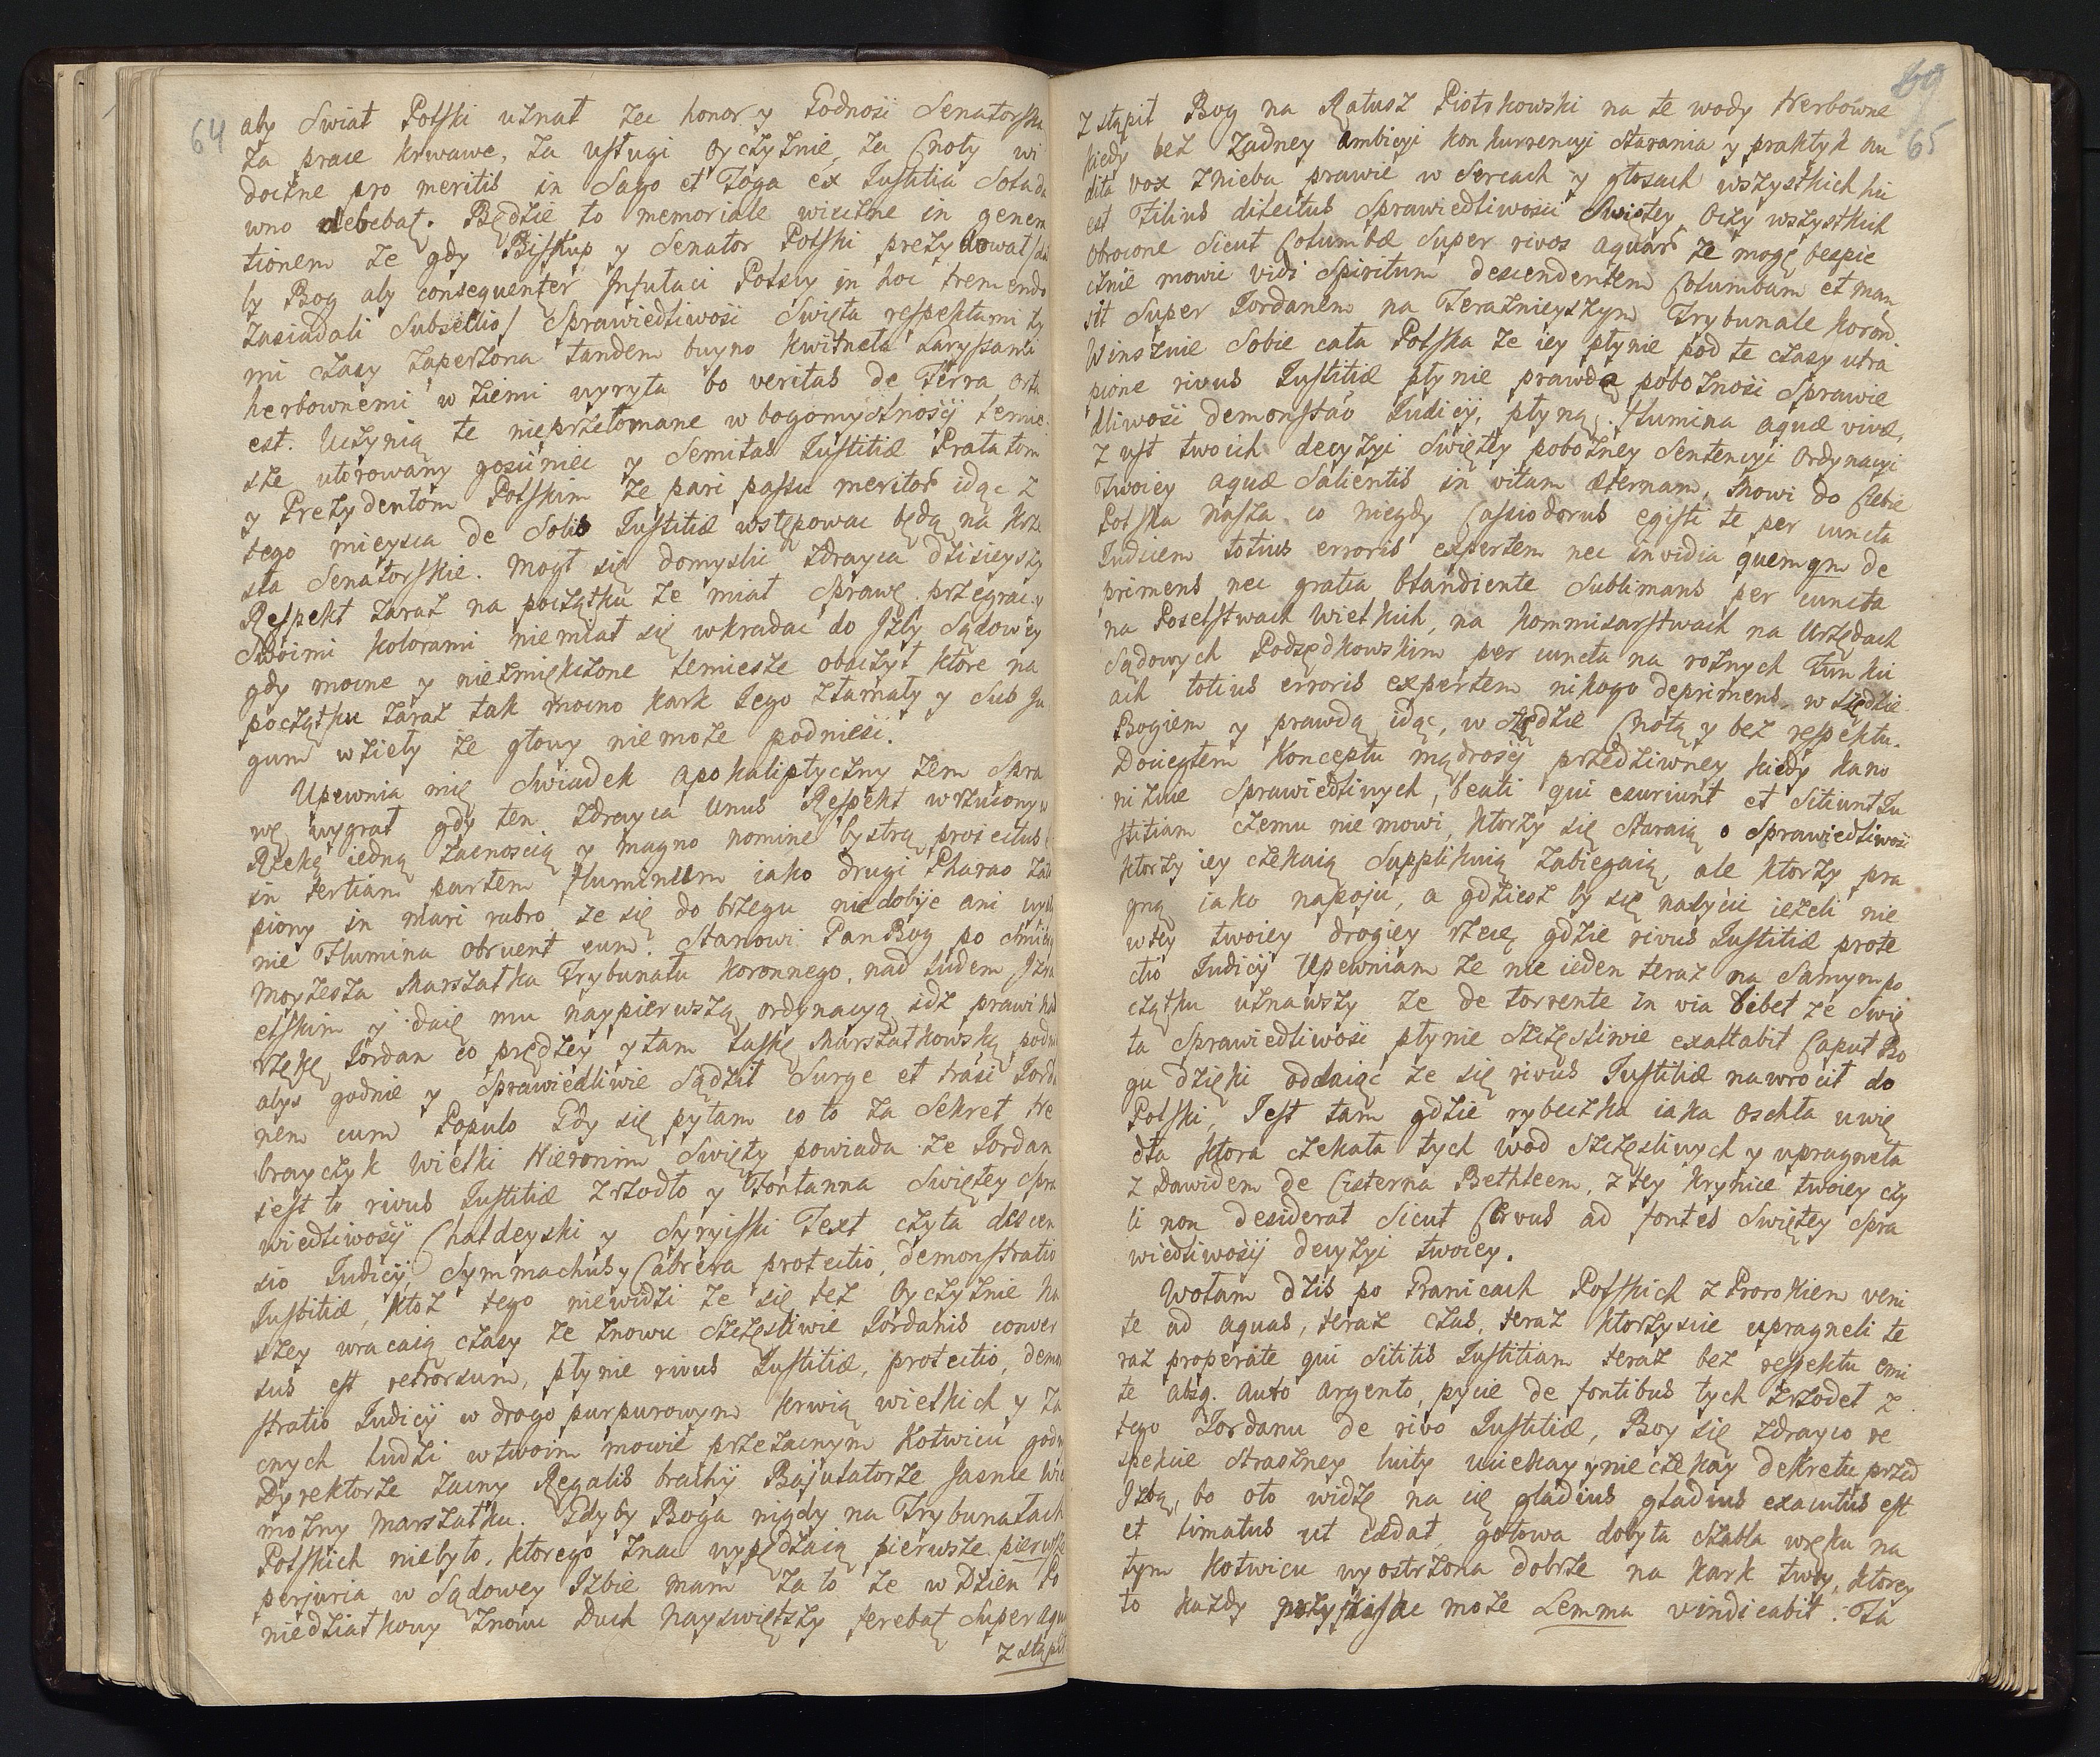 64
aby Swiat Polski uznał zec honor y Godnosc Senatorska
za prace krwawe, za usługi oyczyznie, za Cnoty wi
doczne pro meritis in Sago et Toga ex Justitia Sol a da
wno debebat. Będzie to memoriale wieczne in genera
tionem ze gdy Biskup y Senator Polski prezydował /
by Bog aby consequenter Infułaci Polscy in hoc tremendo
zasiadali Subsellio/ Sprawiedliwosc Swięta respektami ty
mi czasy zaperzona tandem buyno kwitneła Laryssami
herbownemi w ziemi wyryta bo veritas de Terra orta
est. Uczynią te nieprzełomane w bogomyslnosći lemie
sze utorowany gosciniec y Semitas Justitiæ Prałatom
y Prezydentom Polskim ze pari passu meritor idąc z
tego mieysca de Solis Justitiæ wstępowac będą na krze
sła Senatorskie. Mogł się domyslic zdrayca dzisieyszy
Respekt zaraz na początku ze miał Sprawę przegrac y
Swoimi kolorami niemiał się wkradac do Izby Sądowey
gdy mocne y niezmiękczone lemiesze obaczył ktore na
początku zaraz tak mocno kark Jego złamały y Sub Ju
gum wzieły ze głowy niemoze podniesc.
Upewnia mię Swiadek apokaliptyczny zem Spra
wę wygrał gdy ten zdrayca unus Respekt wrzucony w
Rzekę iedną zacnoscią y magno nomine bystrą proiectus
in tertiam partem Fluminum iako drugi Pharao zato
piony in mari rubro ze się do brzegu niedobije ani wypły
nie Flumina obruent eum. Stanowi Pan Bog po smierci
Moyzesza Marszałka Trybunału Koronnego, nad Ludem Izra
elskim y daię mu naypierwszą ordynacyą idz prawi nad
rzekę Jordan co prędzey y tam Laskę Marszałkowską podnies
abys godnie y Sprawiedliwie Sądził Surge et transi Jorda
nem cum Populo Gdy się pytam co to za Sekret, He
brayczyk wielki Hieronim Swięty powiada ze Jordan
iest to rivus Justitiæ zrzodło y Fontanna Swiętey Spra
wiedliwosći Chaldeyski y Syryiski Text czyta descen
sio Judicij, Symmachus y Cabrera protectio, demonstratio
Justitiæ, ktoz tego niewidzi ze się tez Oyczyznie Na
szey wracaią czasy ze znowu szczęsliwie Jordanis conver
sus est retrorsum, płynie rivus Justitiæ, protectio, demon
stratio Judicij w drogo purpurowym krwią wielkich y za
cnych ludzi w twoim mowię przezacnym Kotwicu godny
Dyrektorze zacny Regalis brachij Bajulatorze Jasnie Wiel
mozny Marszałku. Gdyby Boga nigdy na Trybunałach
Polskich niebyło, ktorego znac wypędzaią pierwsze pierwsze
perjuria w Sądowey Izbie mam za to ze w Dzien Po
niedziałkowy znowu Duch Nayswiętszy ferebat Super aquas
zstąpił
69
65
zstąpił Bog na Ratusz Piotrkowski na te wody Herbowne
kiedy bez zadney ambicyi konkurrencyi starania y praktyk au
dita vox z nieba prawie w sercach y głosach wszystkich hic
est Filius dilectus Sprawiedliwosci Swiętey Oczy wszystkich
obrocone Sicut Columbæ Super rivos aquar ze mogę bespie
cznie mowic vidi Spiritum descendentem Columbam et man
sit Super Jordanem na Teraznieyszym Trybunale Koron.
Winszuie Sobie cała Polska ze iey płynie pod te czasy utra
pione rivus Justitiæ płynie prawda poboznosc Sprawie
dliwosc demonstrao Judicij, płyną flumina aquæ vivæ,
z ust twoich decyzyi Swiętey poboznej Sentencyi Ordynacyi
Twoiey aquæ Salientis in vitam æternam, Mowi do Ciebie
Polska nasza co niegdy Cassiodorus egisti te per cuncta
Judicem totius erroris expertem nec invidia quemqm de
primens nec gratia blandiente Sublimans per cuncta
na Poselstwach Wielkich, na Kommisarstwach na Urzędach
Sądowych Podsędkowskim per cuncta na roznych Funkcy
ach totius erroris expertem nikogo deprimens, w Sędzie
Bogiem y prawdą idąc, w Sędzie Cnotą y bez respektu.
Dociegłem Konceptu mądrosći przedziwney kiedy kano
nizuie Sprawiedliwych, beati qui esuriunt et Sitiunt Ju
stitiam czemu nie mowi, ktorzy się staraią o Sprawiedliwosc
ktorzy iey czekaią Supplikuią zabiegaią, ale ktorzy pra
gną iako napoju, a gdziesz by się nasycic iezeli nie
w tey twoiey drogiey rzece gdzie rivus Justitiæ prote
ctio Judicij Upewniam ze nie ieden teraz na Samym po
czątku uznawszy ze de torrente in via bibet ze Swię
ta Sprawiedliwosc płynie szczęsliwie exaltabit Caput Bo
gu dzięki oddaiąc ze się rivus Justitiæ nawrocił do
Polski, Jest tam gdzie rybeczka iaka oschła uwię
dła ktora czekała tych wod szczęsliwych y upragneła
z Dawidem de Cisterna Bethleem, z tey krynice twoiey czy
li non desiderat Sicut Cervus ad fontes Swiętey Spra
wiedliwosći decyzyi twoiey.
Wołam dzis po Granicach Polskich z Prorokiem veni
te ad aquas, teraz czas, teraz ktorzyscie upragneli te
raz properate qui Sititis Justitiam teraz bez respektu emi
te absq. auro argento, pycie de fontibus tych zrzodeł z
tego Jordanu de rivo Justitiæ, Boy się zdrayco re
spekcie straszney huty uciekay y nieczekay dekretu przed
Izbą, bo oto widzę na cię gladius gladius exacutus est
et limatus ut cædat, gotowa dobyta szabla w ręku na
tym Kotwicu wyostrzona dobrze na kark twoy, ktorey
to kazdy przypisac moze Lemma vindicabit. Ta